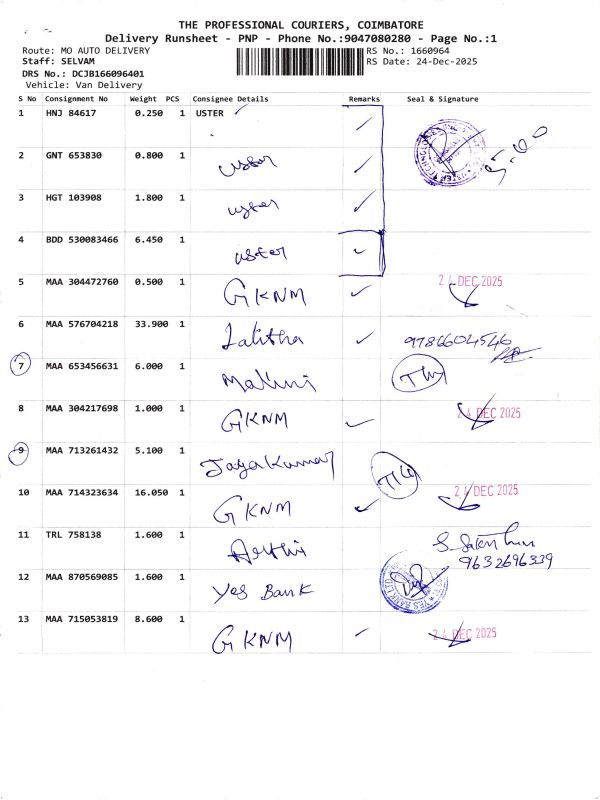 THE PROFESSIONAL COURIERS, COIMBATORE
Delivery Runsheet - PNP - Phone No.:9047080280 - Page No.:1
Route: MO AUTO DELIVERY RS No.: 1660964
Staff: SELVAM RS Date: 24-Dec-2025
DRS No.: DCJB166096401
Vehicle: Van Delivery
S No Consignment No Weight PCS Consignee Details Remarks Seal & Signature
1 HNJ 84617 0.250 1 USTER
2 GNT 653830 0.800 1 uster
3 HGT 103908 1.800 1 uster
4 BDD 530083466 6.450 1 uster
5 MAA 304472760 0.500 1 GKNM 24 DEC 2025
6 MAA 576704218 33.900 1 Lalitha 9786604546
7 MAA 653456631 6.000 1 Malini
8 MAA 304217698 1.000 1 GKNM 24 DEC 2025
9 MAA 713261432 5.100 1 Jayakumar
10 MAA 714323634 16.050 1 GKNM 24 DEC 2025
11 TRL 758138 1.600 1 Arthi
9632696339
12 MAA 870569085 1.600 1 Yes Bank YES BANK
13 MAA 715053819 8.600 1 GKNM 24 DEC 2025